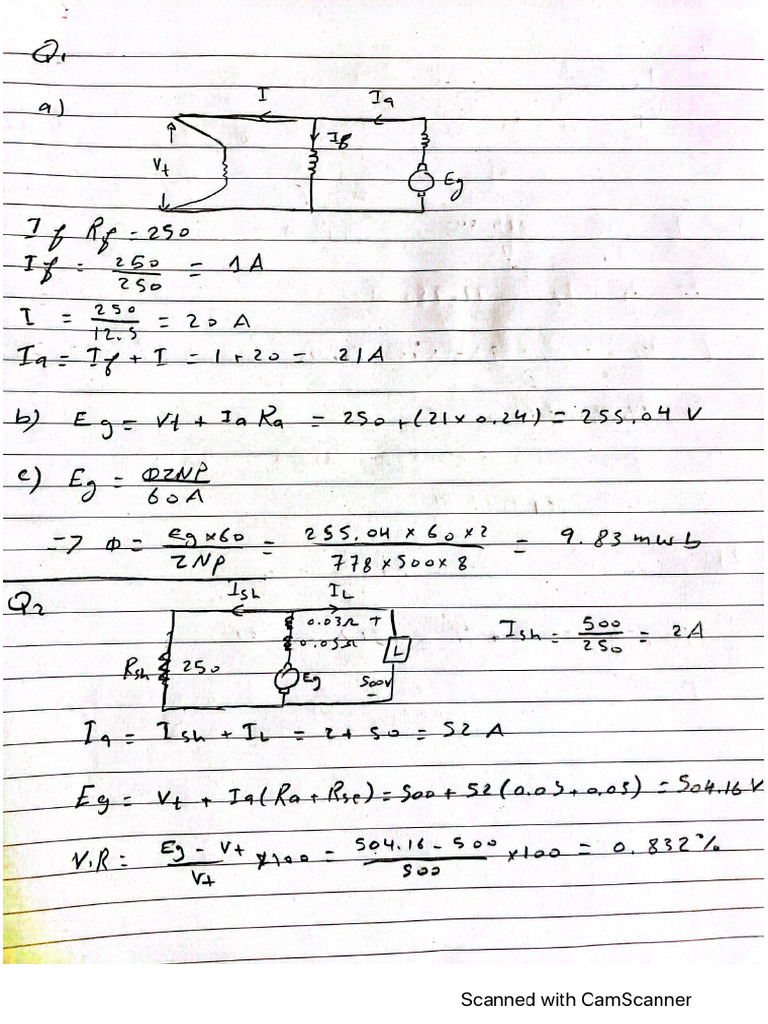 Q1
a)
I Ia
If
Vt
Eg
If Rf = 250
If = 250/250 = 1A
I = 250/12.5 = 20 A
Ia = If + I = 1 + 20 = 21A
b) Eg = Vt + Ia Ra = 250 + (21 x 0.24) = 255.04 V
c) Eg = ΦZNP/60A
=> Φ = Eg x 60/ZNP = 255.04 x 60 x 2/778 x 500 x 8 = 9.83 mwb
Q2
Ish IL
0.03Ω +
0.05Ω
L
Rsh 250
Eg
500V
-
Ish = 500/250 = 2A
Ia = Ish + IL = 2 + 50 = 52 A
Eg = Vt + Ia(Ra + Rse) = 500 + 52 (0.05 + 0.03) = 504.16 V
V.R = Eg - Vt/Vt x 100 = 504.16 - 500/500 x 100 = 0.832%
Scanned with CamScanner